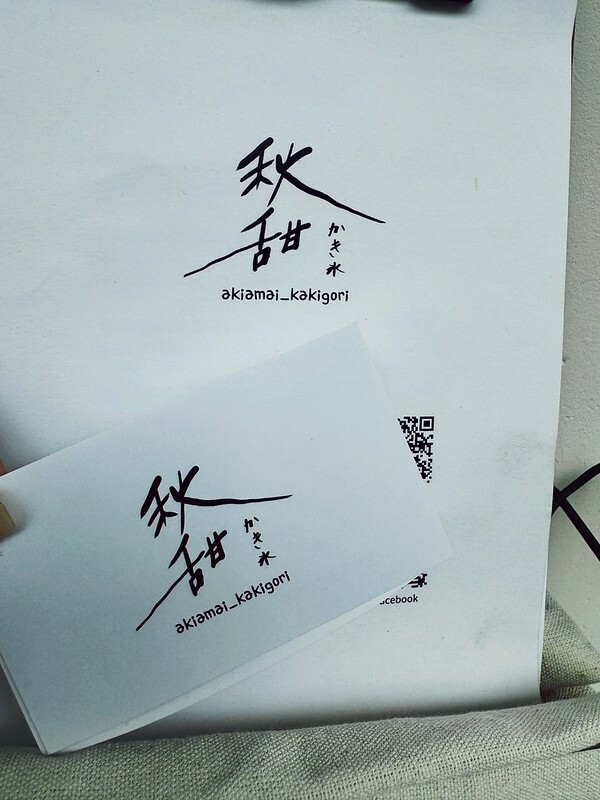 秋
甜
かき氷
akiamai_kakigori
秋
甜
かき氷
akiamai_kakigori
acebook